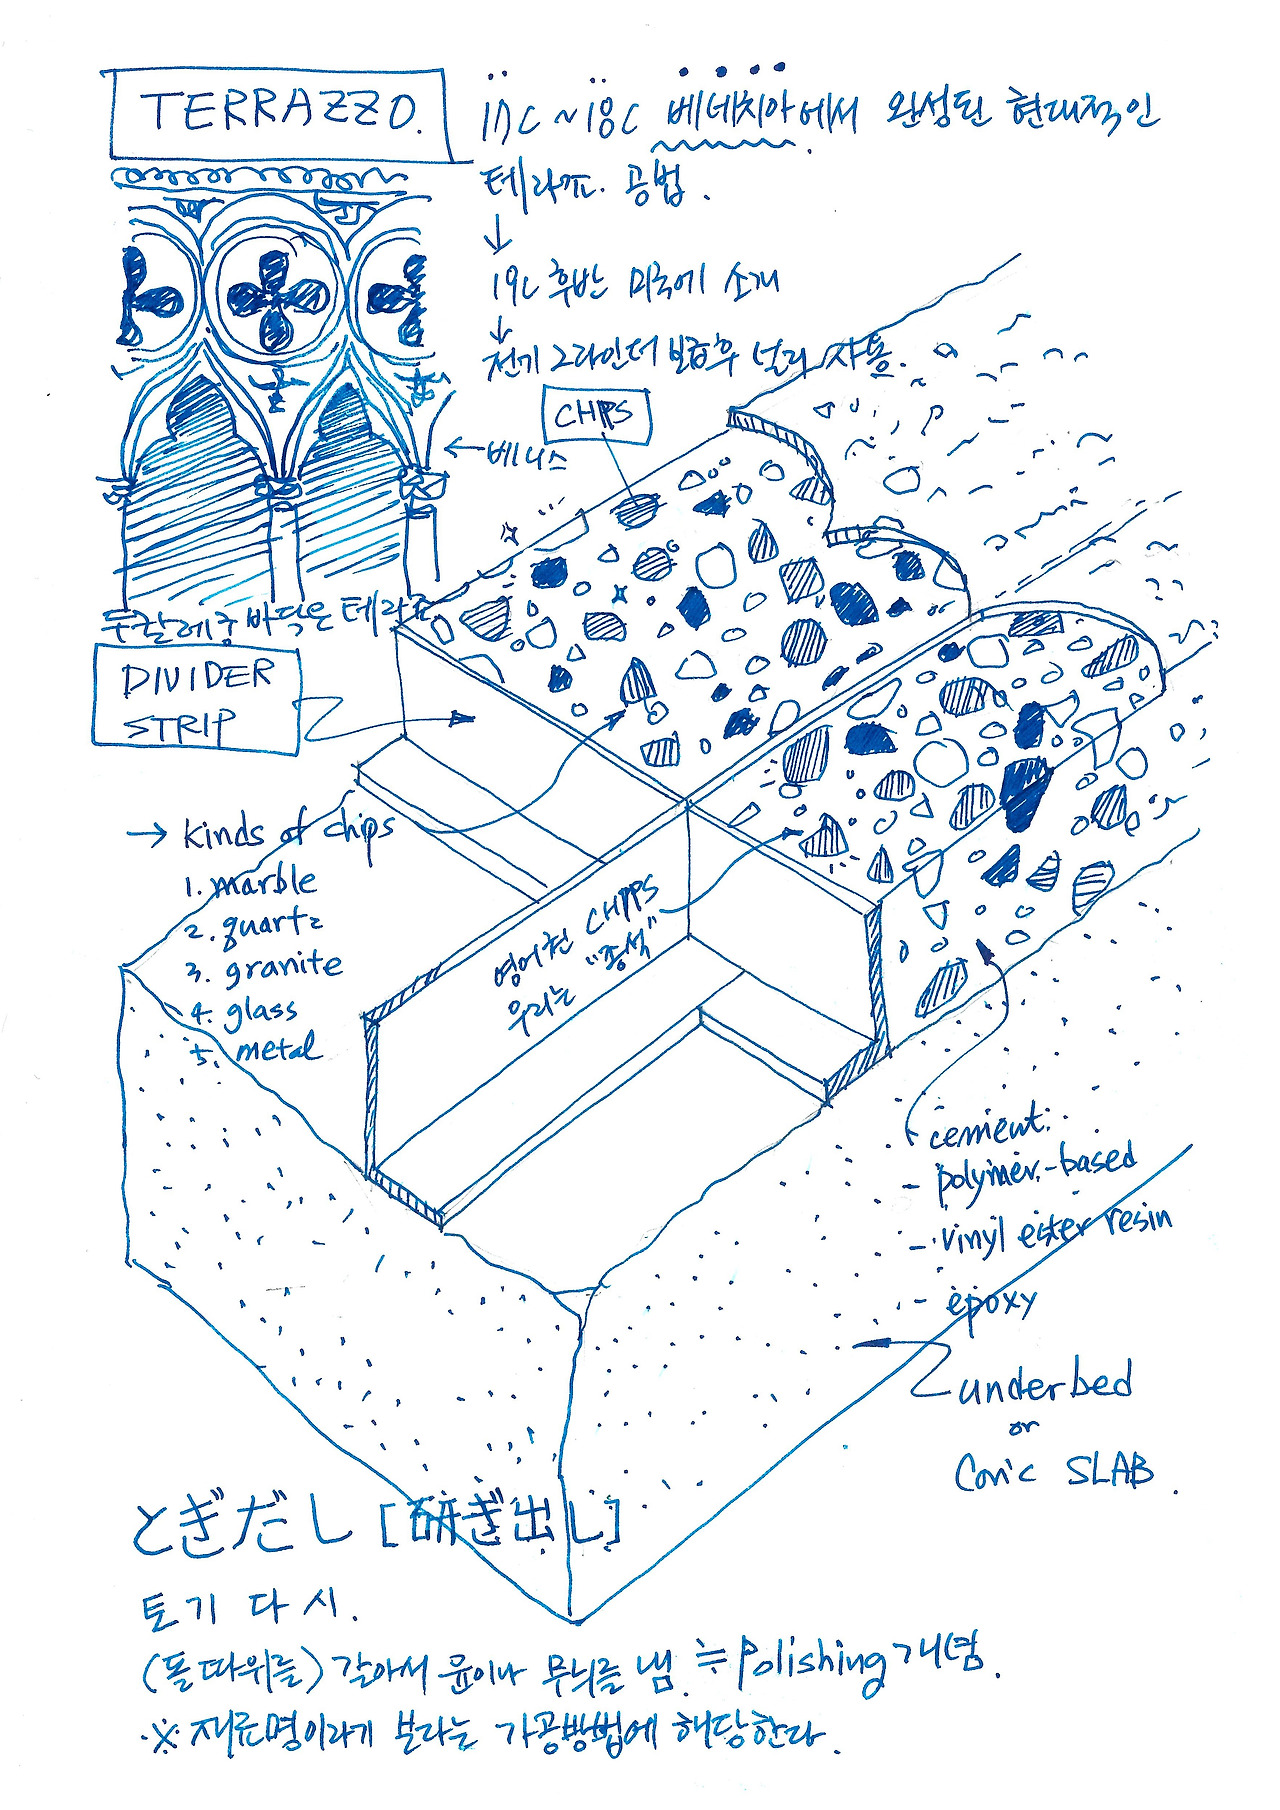 TERRAZZO.
17C ~ 18C 베네치아에서 완성된 현대적인
테라쪼. 공법.
↓
19C 후반 미국에 소개
↓
전기 그라인더 보급후 널리 사용.
CHIPS
← 베니스
두칼레궁 바닥은 테라쪼
DIVIDER
STRIP
→ kinds of chips
1. marble
2. quartz
3. granite
4. glass
5. metal
영어권 CHIPS
우리는 "종석"
cement.
- polymer-based
- vinyl ester resin
- epoxy
underbed
or
Conc SLAB.
とぎだし [研ぎ出し]
토기다시.
(돌 따위를) 갈아서 윤이나 무늬를 냄. ≒ Polishing 개념.
※ 재료명이라기 보다는 가공방법에 해당한다.